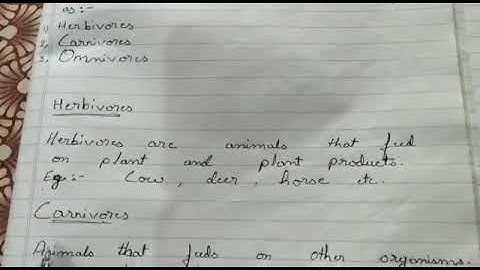 as:-
1) Herbivores
2, Carnivores
3, Omnivores
Herbivores
Herbivores are animals that feed
on plant and plant products.
Eg:- Cow, deer, horse etc.
Carnivores
Animals that feeds on other organisms.